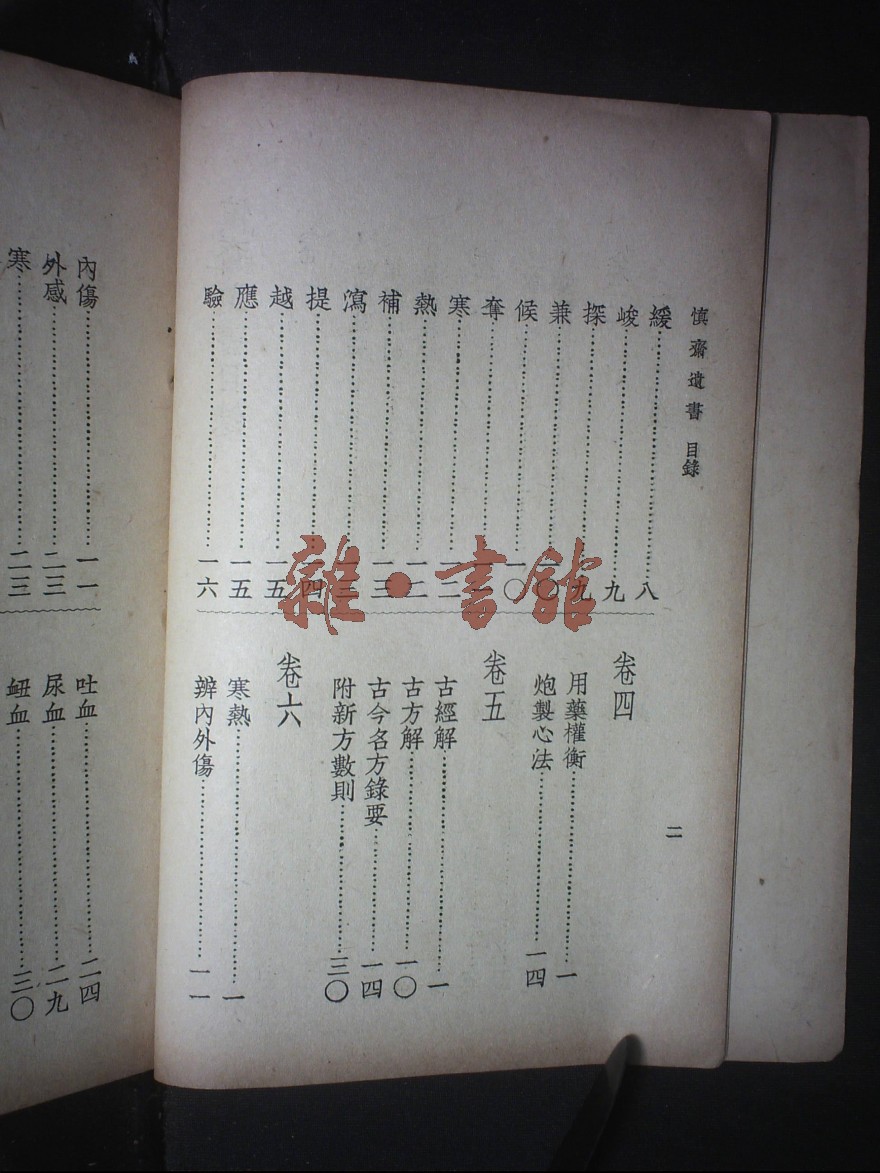 慎齋遺書 目錄
二
緩……八
峻……九
探……九
兼……一〇
候……一〇
奪……
寒……一二
熱……一二
補……一三
瀉……一三
提……一四
越……一五
應……一五
驗……一六
卷四
用藥權衡……一
炮製心法……一四
卷五
古經解……一
古方解……一〇
古今名方錄要……一四
附新方數則……三〇
卷六
寒熱……一
辨內外傷……一一
內傷……一一
外感……二三
寒……二三
吐血……二四
尿血……二九
衄血……三〇
雜·書館